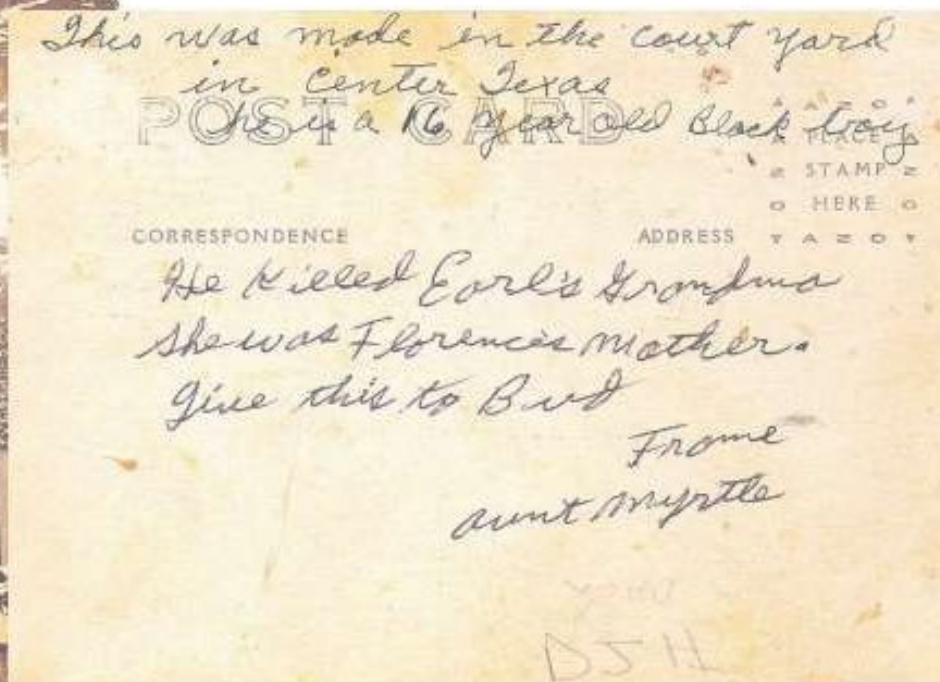 This was made in the court yard
in Center Texas
he is a 16 year old Black boy
POST CARD
PLACE
STAMP
HERE
CORRESPONDENCE
ADDRESS
He Killed Earl's Grandma
she was Florence's mother.
give this to Bud
From
aunt Myrtle